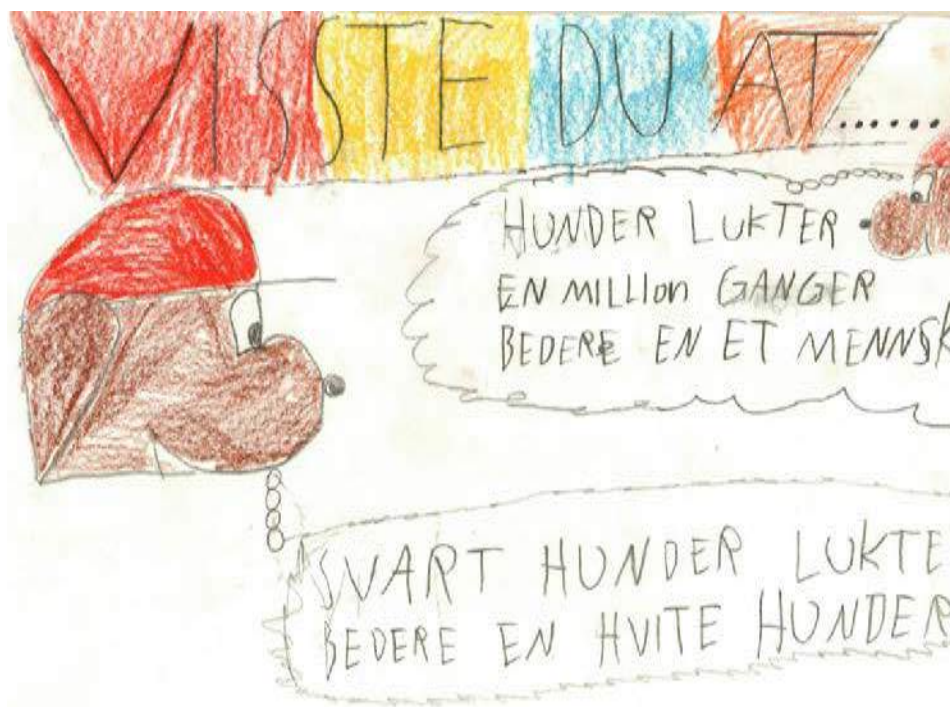 VISSTE DU AT........
HUNDER LUKTER
EN MILLION GANGER
BEDERE EN ET MENNSK
SVART HUNDER LUKTE
BEDERE EN HVITE HUNDER